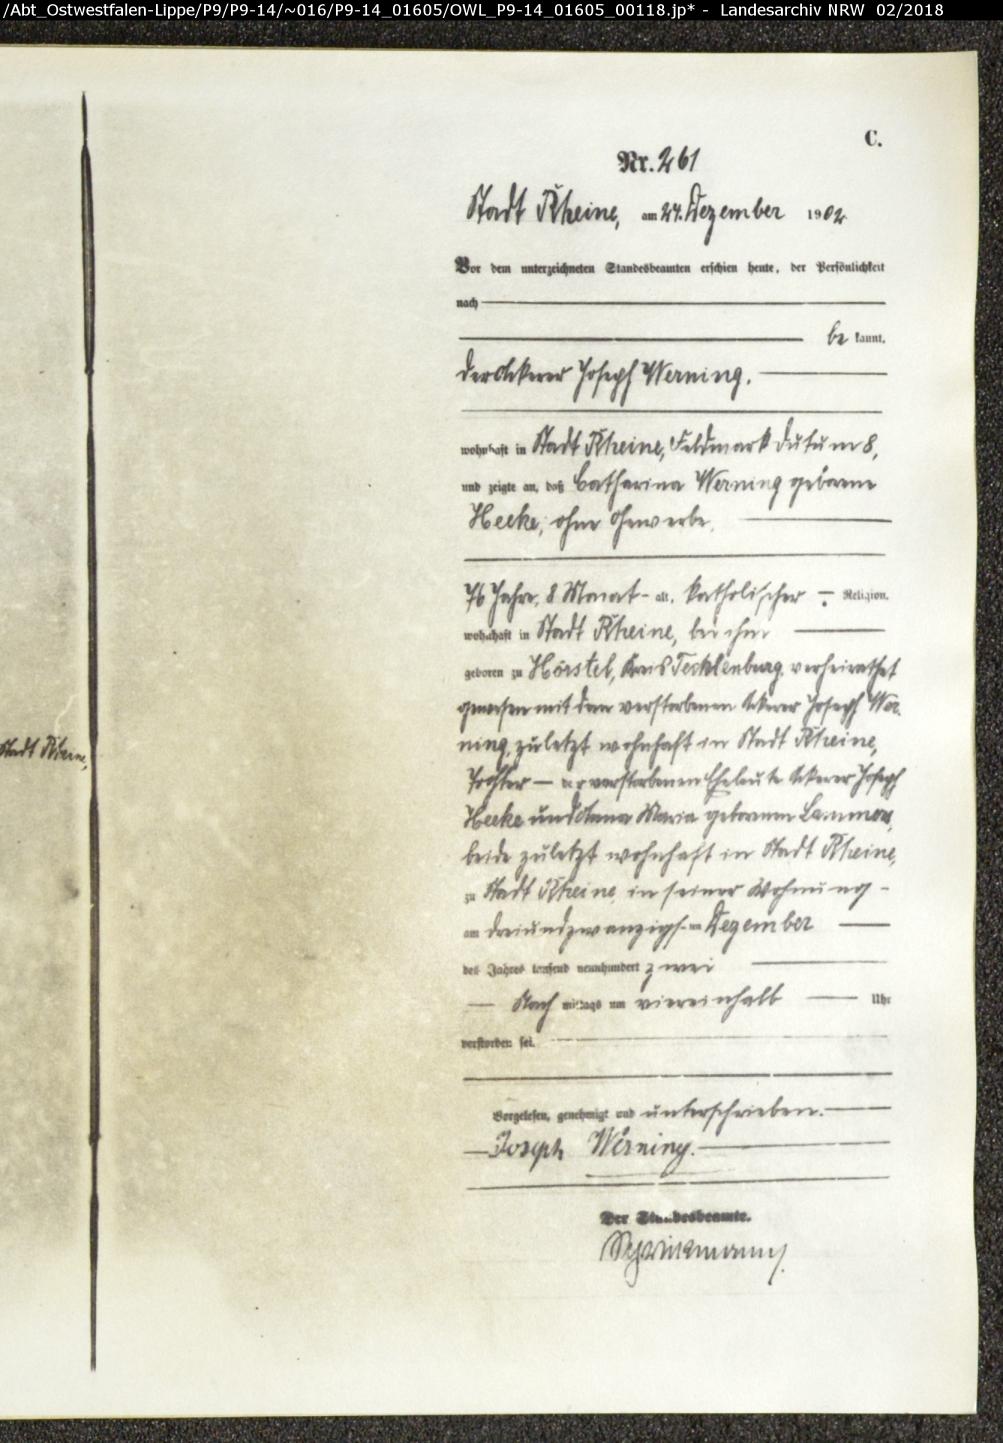 /Abt_Ostwestfalen-Lippe/P9/P9-14/~016/P9-14_01605/OWL_P9-14_01605_00118.jp* - Landesarchiv NRW 02/2018
C.
Nr. 261
Stadt Rheine, am 24. Dezember 1902
Vor dem unterzeichneten Standesbeamten erschien heute, der Persönlichkeit
nach
be kannt,
der Ackerer Joseph Werning.
wohnhaft in Stadt Rheine, Feldmark Dutum 8,
und zeigte an, daß Catharina Werning geborene
Hecke, ohne Gewerbe,
76 Jahre, 8 Monat - alt, katholischer - Religion,
wohnhaft in Stadt Rheine, bei ihm
geboren zu Hörstel, Kreis Tecklenburg, verheirathet
gewesen mit dem verstorbenen Ackerer Joseph Wer-
ning, zuletzt wohnhaft in Stadt Rheine,
Tochter — der verstorbenen Eheleute Ackerer Joseph
Hecke und Anna Maria geborenen
beide zuletzt wohnhaft in Stadt Rheine,
zu Stadt Rheine, in seiner Wohnung -
am dreiundzwanzigsten Dezember
des Jahres tausend neunhundert zwei
— Nach mittags um viereinhalb — Uhr
verstorben sei.
Vorgelesen, genehmigt und unterschrieben.
Joseph Werning.
Der Standesbeamte.
Stadt Rheine,